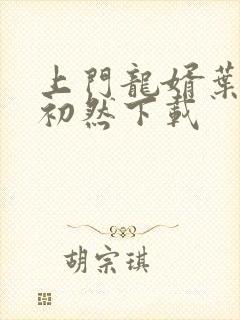 上門龍婿葉
初然下載
胡宗琪